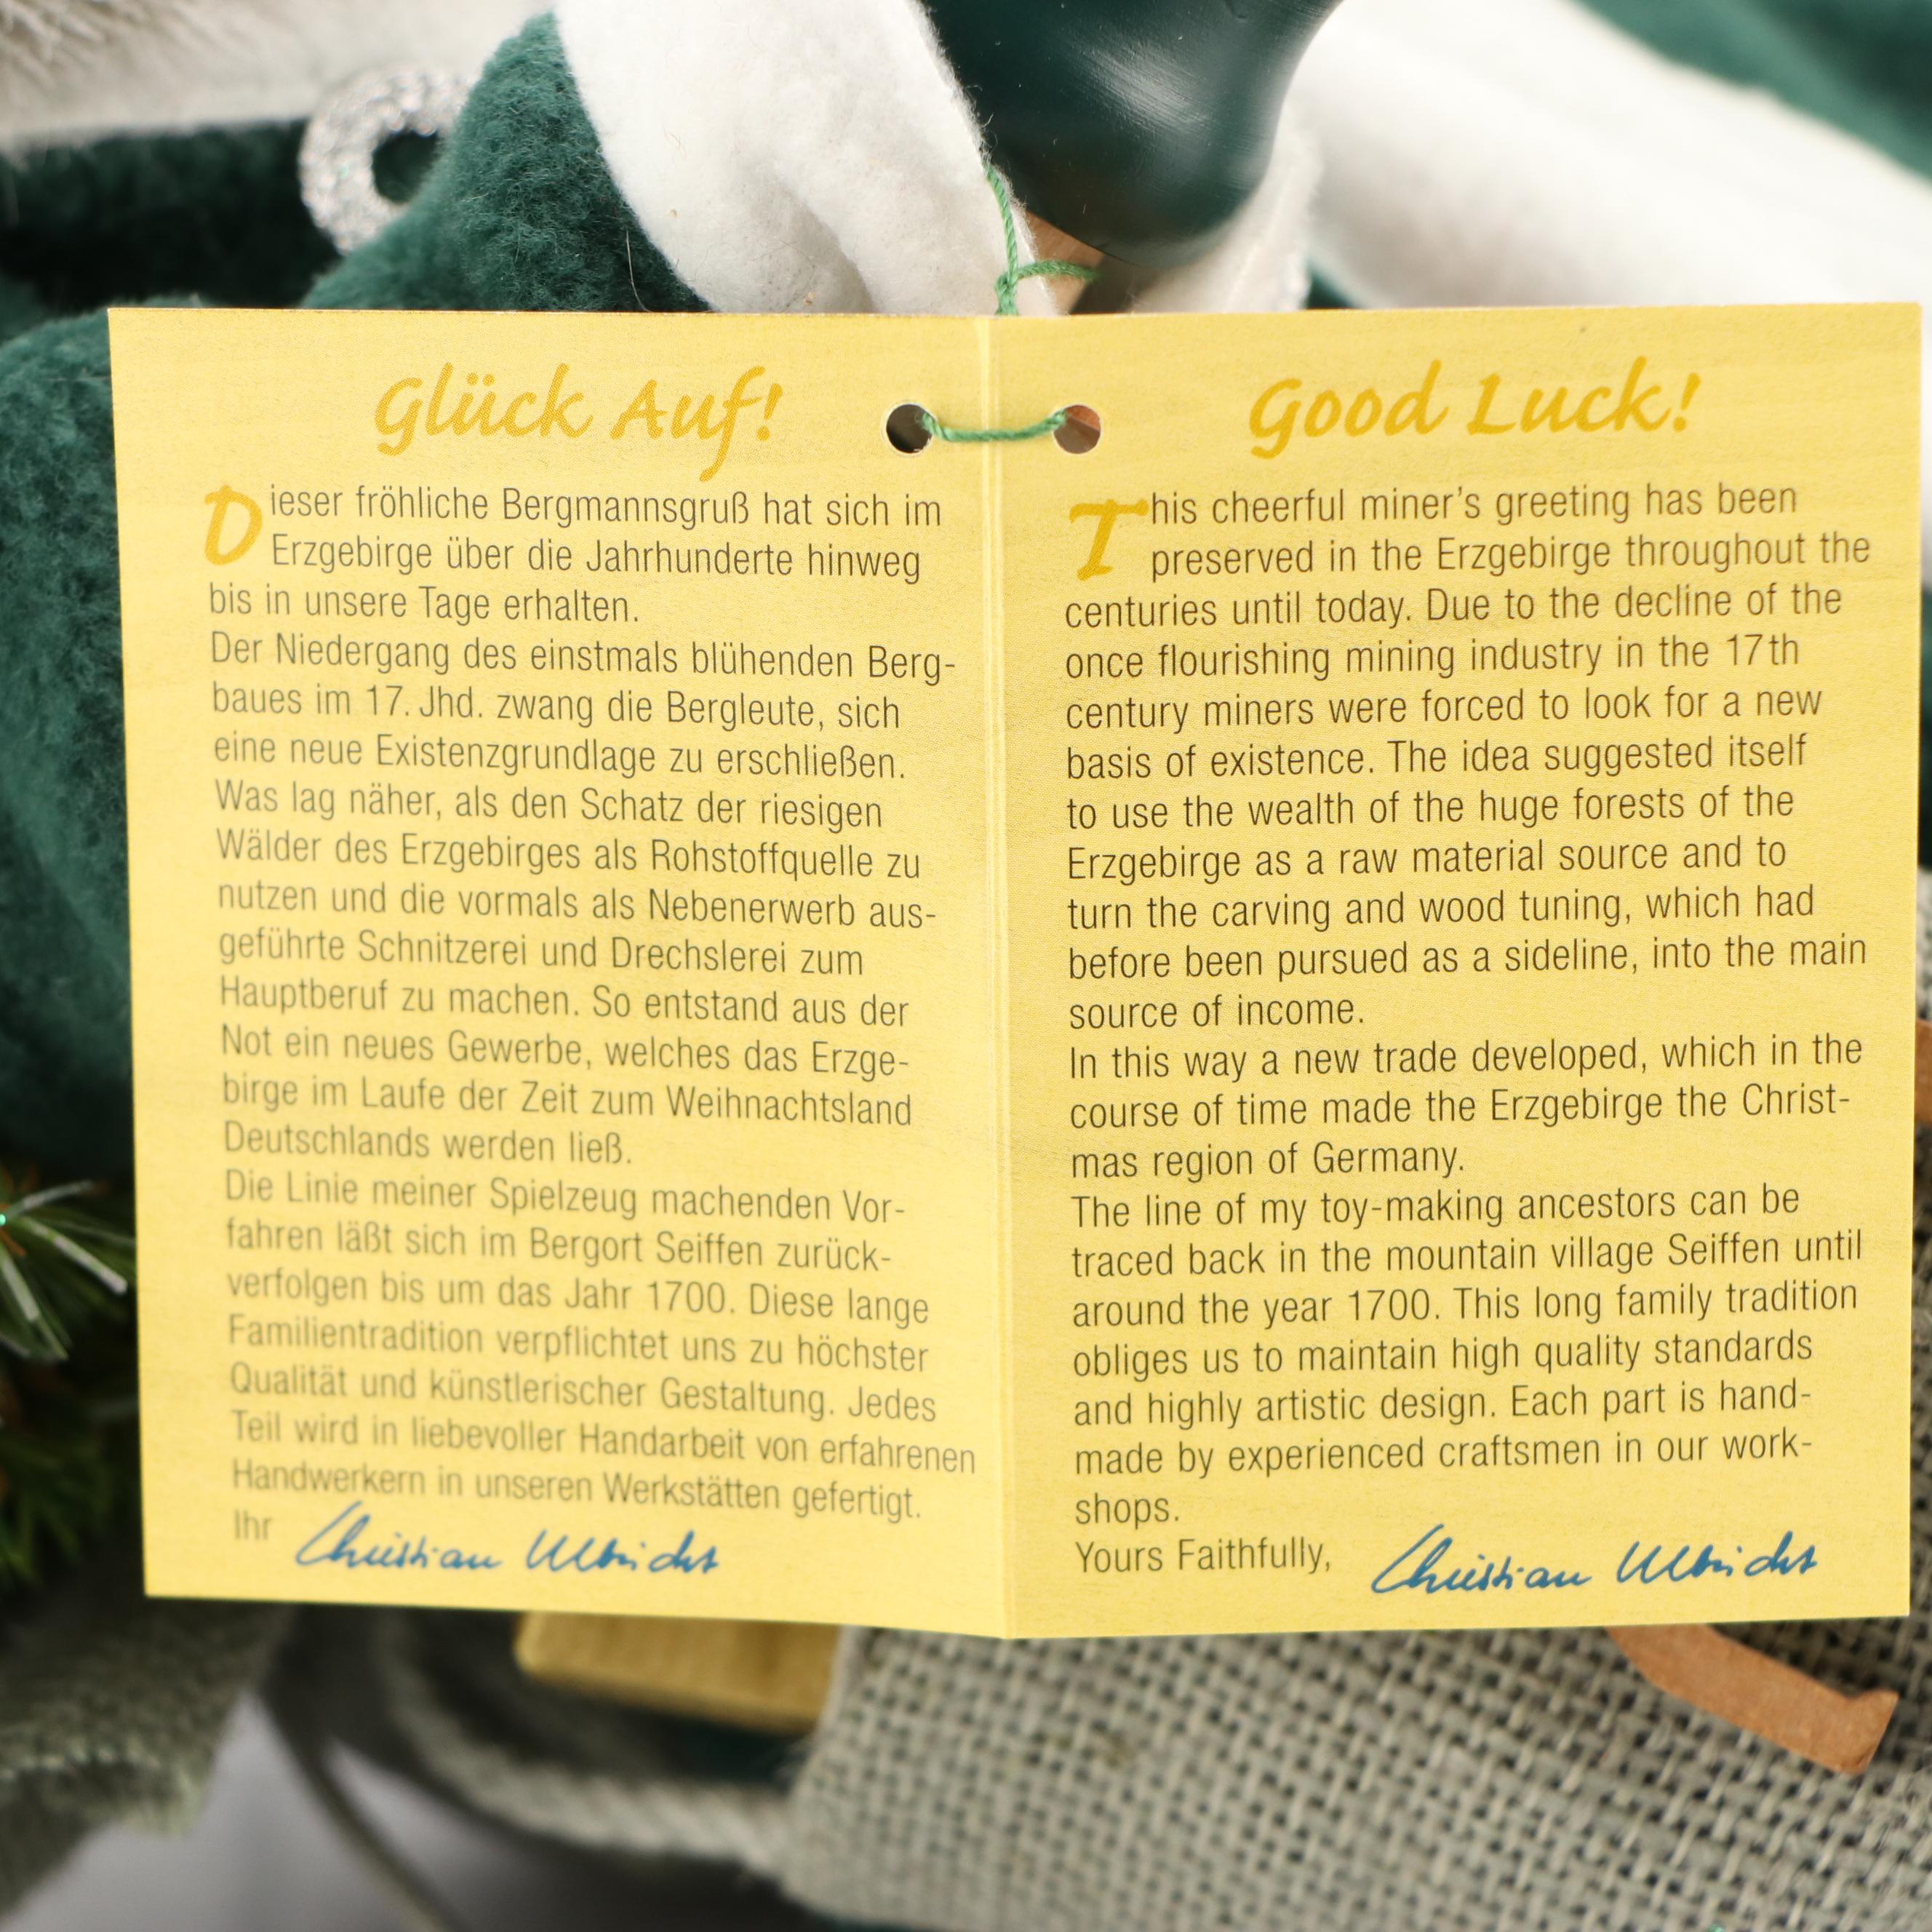 Glück Auf!
Dieser fröhliche Bergmannsgruß hat sich im
Erzgebirge über die Jahrhunderte hinweg
bis in unsere Tage erhalten.
Der Niedergang des einstmals blühenden Berg-
baues im 17. Jhd. zwang die Bergleute, sich
eine neue Existenzgrundlage zu erschließen.
Was lag näher, als den Schatz der riesigen
Wälder des Erzgebirges als Rohstoffquelle zu
nutzen und die vormals als Nebenerwerb aus-
geführte Schnitzerei und Drechslerei zum
Hauptberuf zu machen. So entstand aus der
Not ein neues Gewerbe, welches das Erzge-
birge im Laufe der Zeit zum Weihnachtsland
Deutschlands werden ließ.
Die Linie meiner Spielzeug machenden Vor-
fahren läßt sich im Bergort Seiffen zurück-
verfolgen bis um das Jahr 1700. Diese lange
Familientradition verpflichtet uns zu höchster
Qualität und künstlerischer Gestaltung. Jedes
Teil wird in liebevoller Handarbeit von erfahrenen
Handwerkern in unseren Werkstätten gefertigt.
Ihr Christian Ulbricht
Good Luck!
This cheerful miner's greeting has been
preserved in the Erzgebirge throughout the
centuries until today. Due to the decline of the
once flourishing mining industry in the 17th
century miners were forced to look for a new
basis of existence. The idea suggested itself
to use the wealth of the huge forests of the
Erzgebirge as a raw material source and to
turn the carving and wood tuning, which had
before been pursued as a sideline, into the main
source of income.
In this way a new trade developed, which in the
course of time made the Erzgebirge the Christ-
mas region of Germany.
The line of my toy-making ancestors can be
traced back in the mountain village Seiffen until
around the year 1700. This long family tradition
obliges us to maintain high quality standards
and highly artistic design. Each part is hand-
made by experienced craftsmen in our work-
shops.
Yours Faithfully, Christian Ulbricht